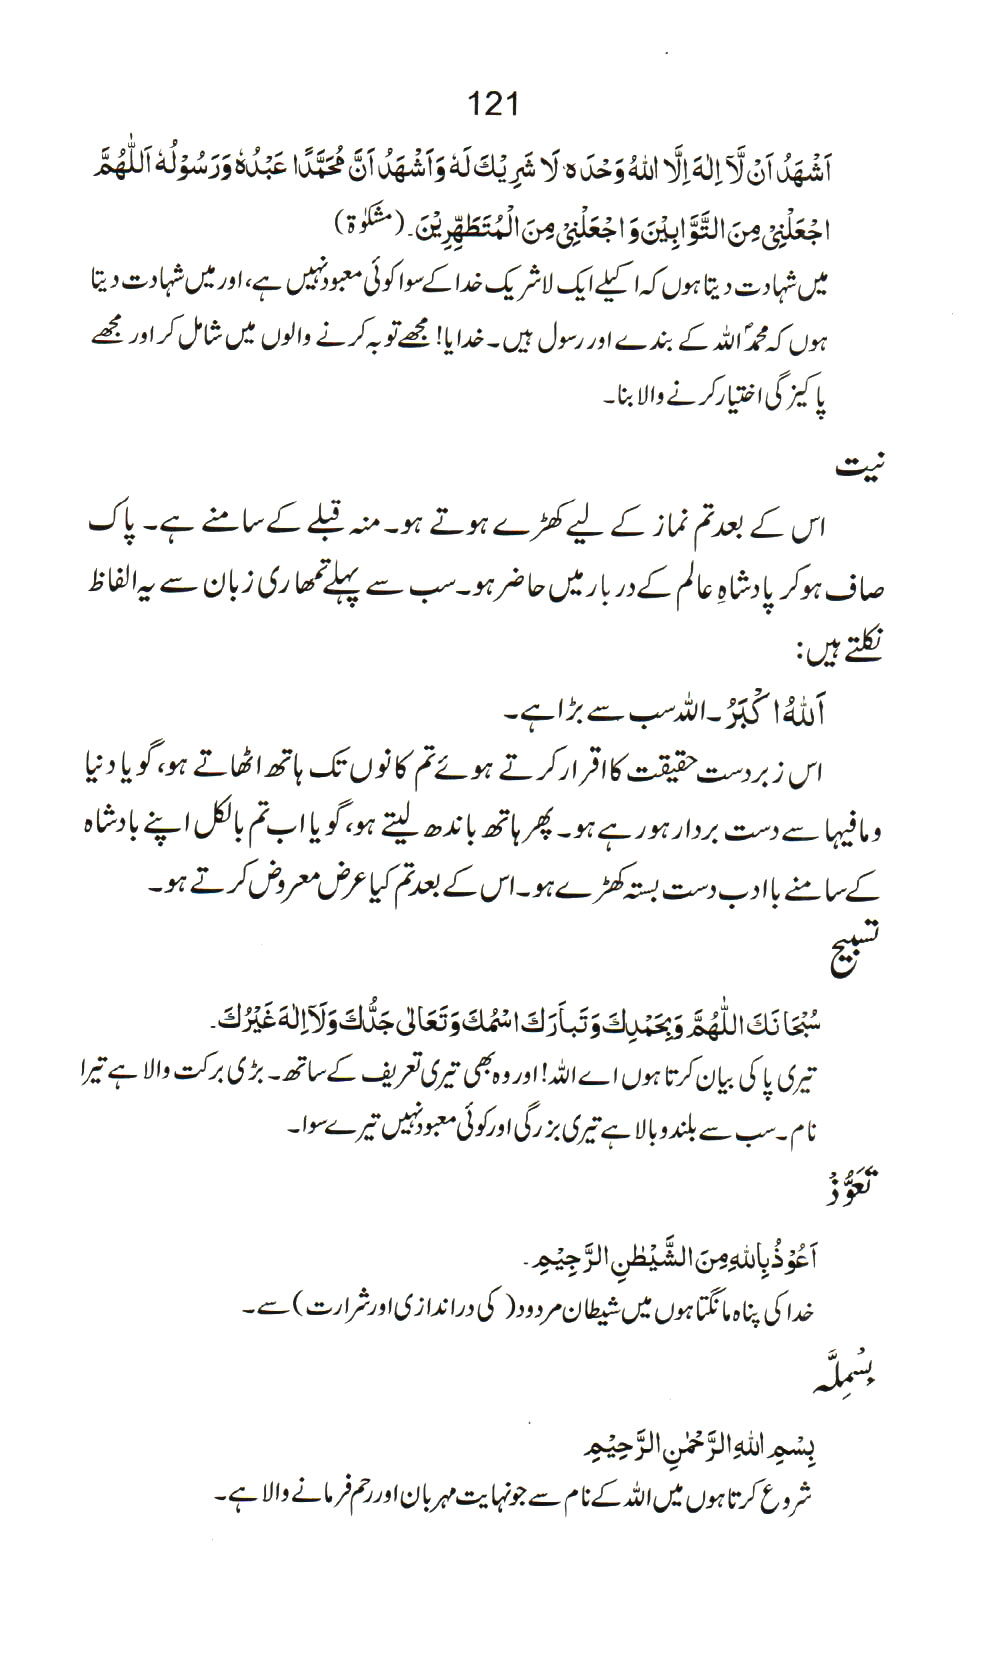 121
اَشْهَدُ اَنْ لَّآ اِلٰهَ اِلَّا اللهُ وَحْدَهٗ لَا شَرِيْكَ لَهٗ وَاَشْهَدُ اَنَّ مُحَمَّدًا عَبْدُهٗ وَرَسُوْلُهٗ اَللّٰهُمَّ
اجْعَلْنِيْ مِنَ التَّوَّابِيْنَ وَاجْعَلْنِيْ مِنَ الْمُتَطَهِّرِيْنَ۔ (مشکوٰۃ)
میں شہادت دیتا ہوں کہ اکیلے ایک لاشریک خدا کے سوا کوئی معبود نہیں ہے، اور میں شہادت دیتا
ہوں کہ محمدؐ اللہ کے بندے اور رسول ہیں۔ خدایا! مجھے توبہ کرنے والوں میں شامل کر اور مجھے
پاکیزگی اختیار کرنے والا بنا۔
نیت
اس کے بعد تم نماز کے لیے کھڑے ہوتے ہو۔ منہ قبلے کے سامنے ہے۔ پاک
صاف ہو کر پادشاہِ عالم کے دربار میں حاضر ہو۔ سب سے پہلے تمھاری زبان سے یہ الفاظ
نکلتے ہیں:
اَللهُ اكْبَرُ۔ اللہ سب سے بڑا ہے۔
اس زبردست حقیقت کا اقرار کرتے ہوئے تم کانوں تک ہاتھ اٹھاتے ہو، گویا دنیا
ومافیہا سے دست بردار ہو رہے ہو۔ پھر ہاتھ باندھ لیتے ہو، گویا اب تم بالکل اپنے بادشاہ
کے سامنے باادب دست بستہ کھڑے ہو۔ اس کے بعد تم کیا عرض معروض کرتے ہو۔
تسبیح
سُبْحَانَكَ اللّٰهُمَّ وَبِحَمْدِكَ وَتَبَارَكَ اسْمُكَ وَتَعَالٰى جَدُّكَ وَلَآ اِلٰهَ غَيْرُكَ۔
تیری پاکی بیان کرتا ہوں اے اللہ! اور وہ بھی تیری تعریف کے ساتھ۔ بڑی برکت والا ہے تیرا
نام۔ سب سے بلند وبالا ہے تیری بزرگی اور کوئی معبود نہیں تیرے سوا۔
تَعَوُّذْ
اَعُوْذُ بِاللهِ مِنَ الشَّيْطٰنِ الرَّجِيْمِ۔
خدا کی پناہ مانگتا ہوں میں شیطان مردود (کی دراندازی اور شرارت) سے۔
بِسْمِلَّہ
بِسْمِ اللهِ الرَّحْمٰنِ الرَّحِيْمِ
شروع کرتا ہوں میں اللہ کے نام سے جو نہایت مہربان اور رحم فرمانے والا ہے۔